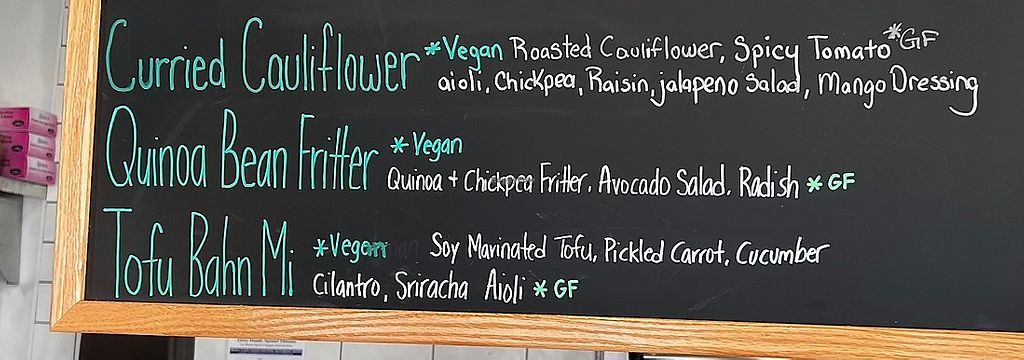 Curried Cauliflower *Vegan Roasted Cauliflower, Spicy Tomato *GF
aioli, Chickpea, Raisin, jalapeno Salad, Mango Dressing
Quinoa Bean Fritter *Vegan
Quinoa + Chickpea Fritter, Avocado Salad, Radish *GF
Tofu Bahn Mi *Vegan Soy Marinated Tofu, Pickled Carrot, Cucumber
Cilantro, Sriracha Aioli *GF